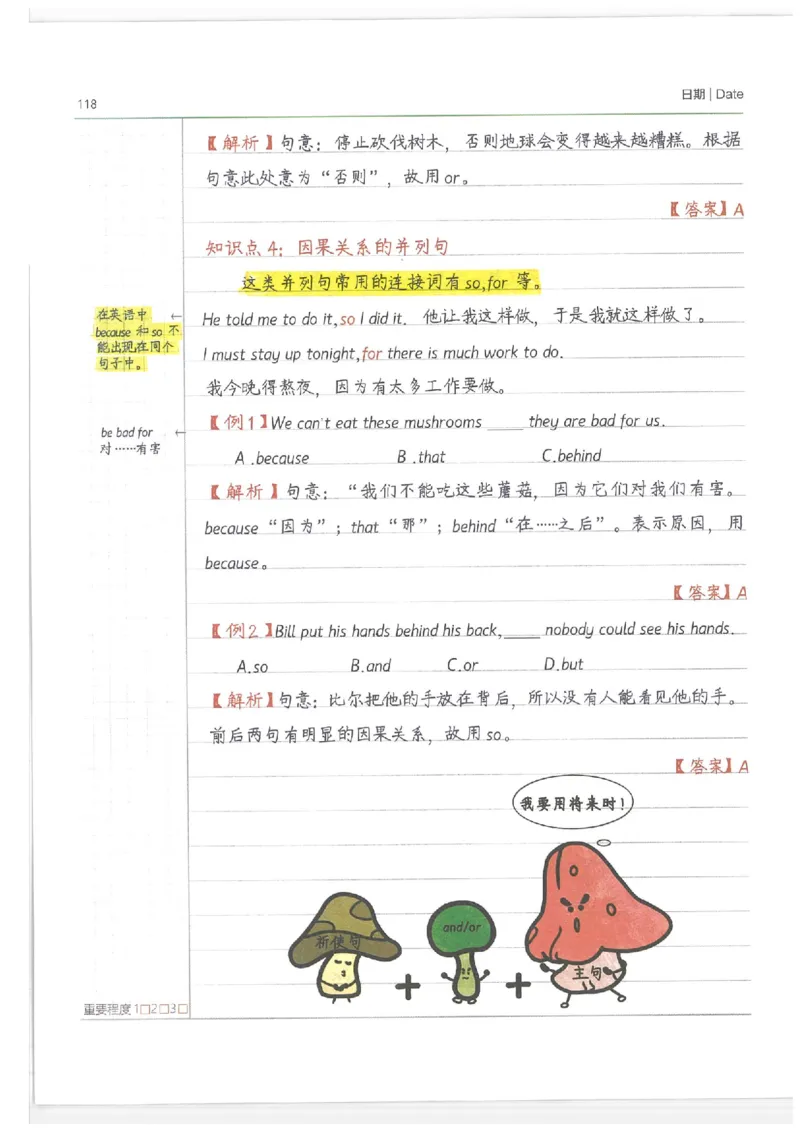 118
日期 | Date
【解析】句意：停止砍伐树木，否则地球会变得越来越糟糕。根据
句意此处意为“否则”，故用or。
【答案】A
知识点4：因果关系的并列句
这类并列句常用的连接词有so,for等。
在英语中
because 和 so 不
能出现在同个
句子中。
He told me to do it,so I did it. 他让我这样做，于是我就这样做了。
I must stay up tonight,for there is much work to do.
我今晚得熬夜，因为有太多工作要做。
【例1】We can't eat these mushrooms _____ they are bad for us.
be bad for
对……有害
A .because B .that C.behind
【解析】句意：“我们不能吃这些蘑菇，因为它们对我们有害。
because“因为”；that“那”；behind“在……之后”。表示原因，用
because。
【答案】A
【例2】Bill put his hands behind his back,_____ nobody could see his hands.
A.so B.and C.or D.but
【解析】句意：比尔把他的手放在背后，所以没有人能看见他的手。
前后两句有明显的因果关系，故用so。
【答案】A
我要用将来时！
祈使句
and/or
主句
+ +
重要程度1□2□3□